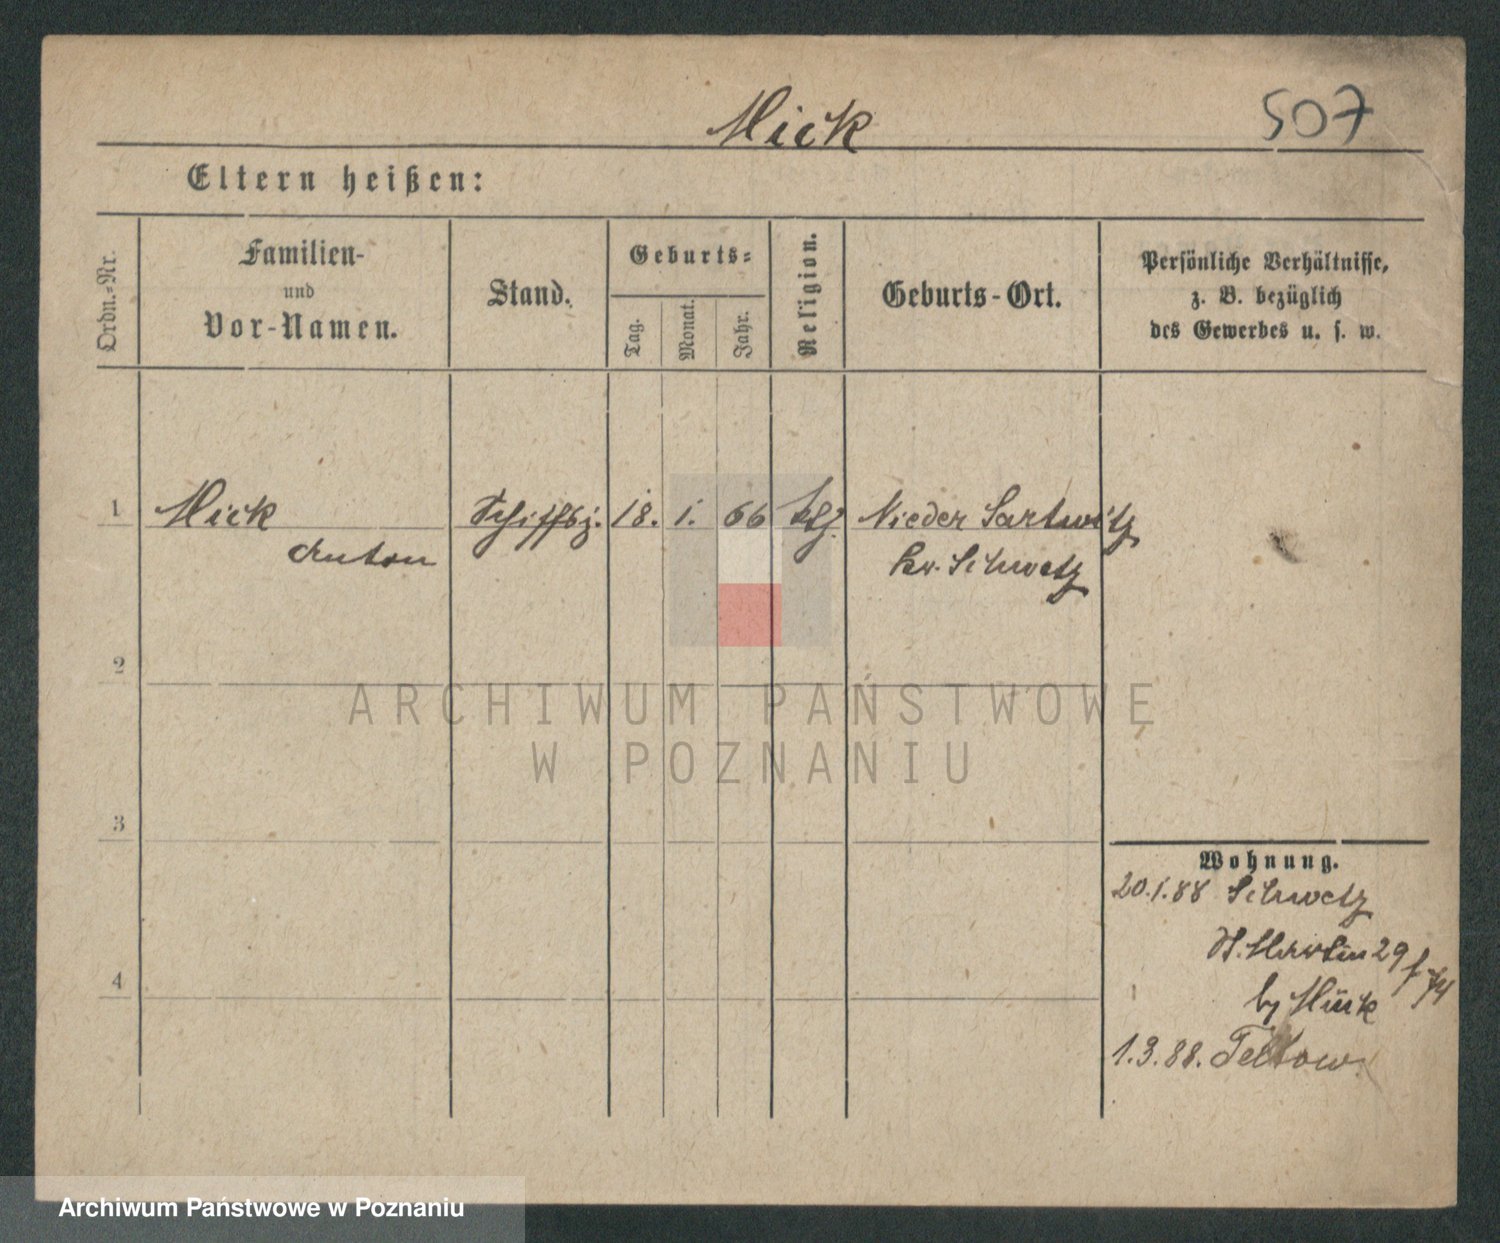 Mick
507
Eltern heißen:
Ordn.-Nr.
Familien-
und
Vor-Namen.
Stand.
Geburts-
Tag.
Monat.
Jahr.
Religion.
Geburts-Ort.
Persönliche Verhältnisse,
z. B. bezüglich
des Gewerbes u. s. w.
1 Mick Schiffsj. 18. 1. 66 Nieder Sartwitz
Anton Kr. Schwetz
2
3
4
Wohnung.
20.1.88 Schwetz
St. Martin 29
by Mick
1.3.88. Teltow
ARCHIWUM PAŃSTWOWE
W POZNANIU
Archiwum Państwowe w Poznaniu